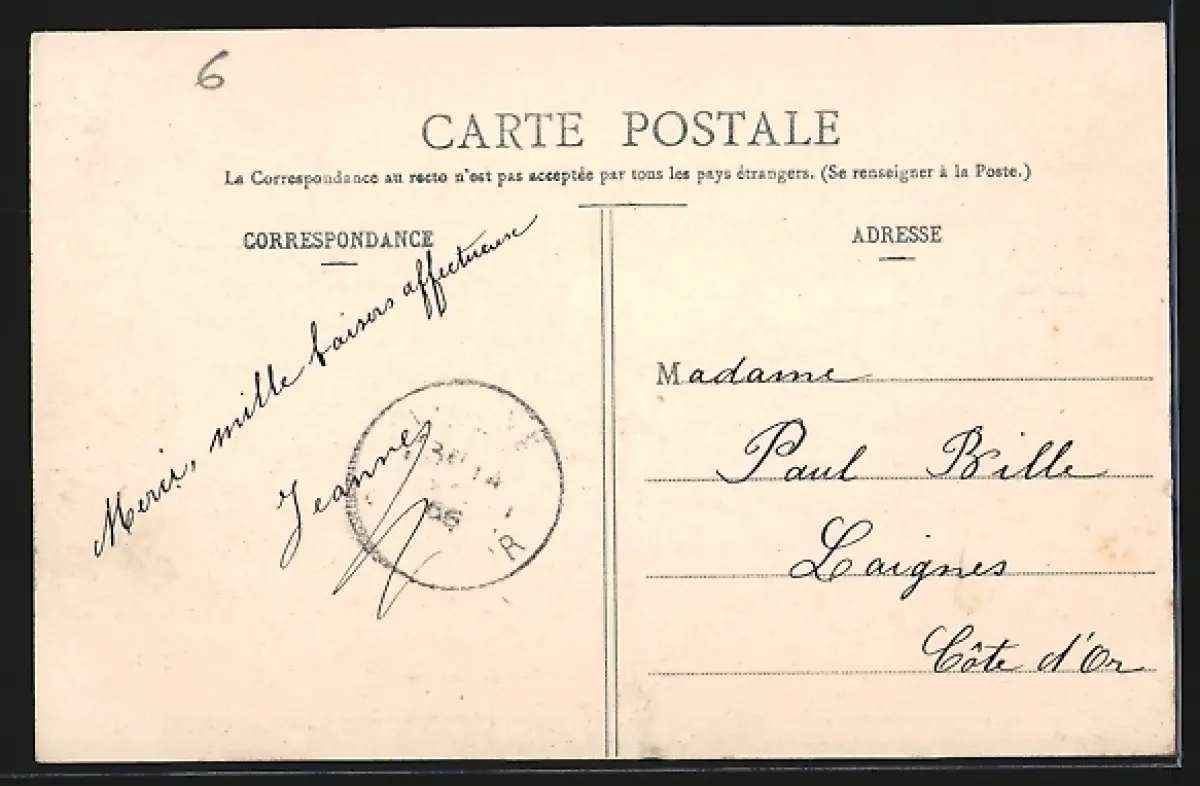 6
CARTE POSTALE
La Correspondance au recto n'est pas acceptée par tous les pays étrangers. (Se renseigner à la Poste.)
CORRESPONDANCE
Merci, mille baisers affectueuse
Jeanne
ADRESSE
Madame
Paul Bille
Laignes
Côte d'Or